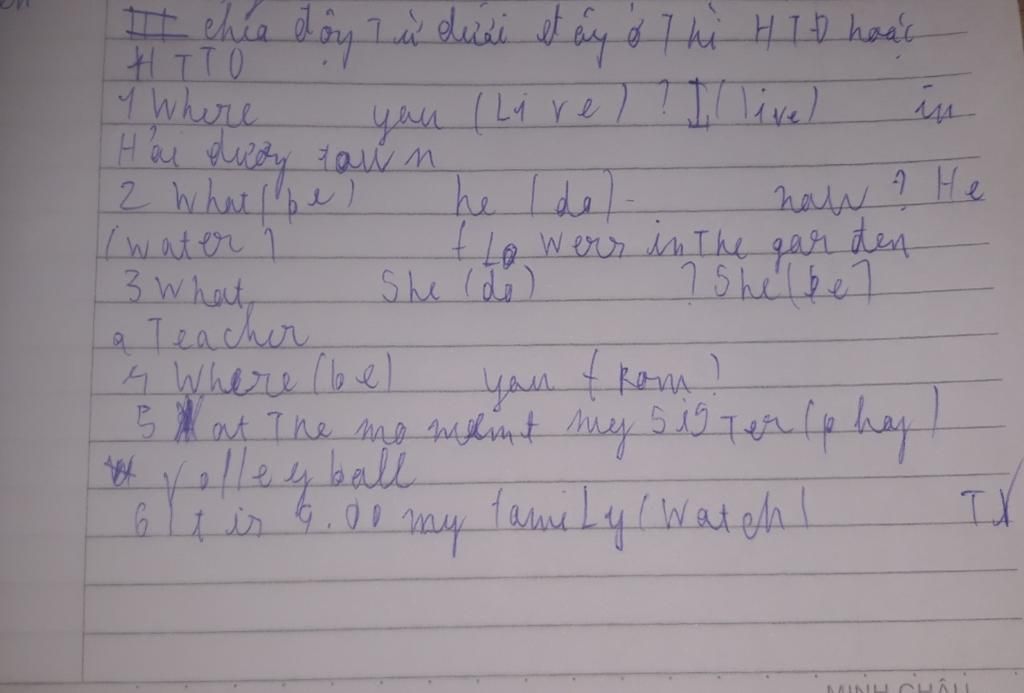 III chia động Từ dưới đây ở Thì HTĐ hoặc
HTTD
1 Where you (Live) ? I (live) in
Hải dương town
2 What (be) he (do) now ? He
(water) flowers in the garden
3 What she (do) ? She (be)
a Teacher
4 Where (be) you from ?
5 at The moment my sister (play)
volleyball
6 It is 9.00 my family (watch) TV
MINH CHÂU